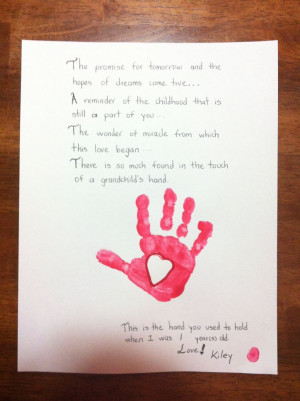 The promise for tomorrow and the
hopes of dreams come true...
A reminder of the childhood that is
still a part of you...
The wonder of miracle from which
this love began...
There is so much found in the touch
of a grandchild's hand.
This is the hand you used to hold
when I was 1 year(s) old.
Love!
Kiley